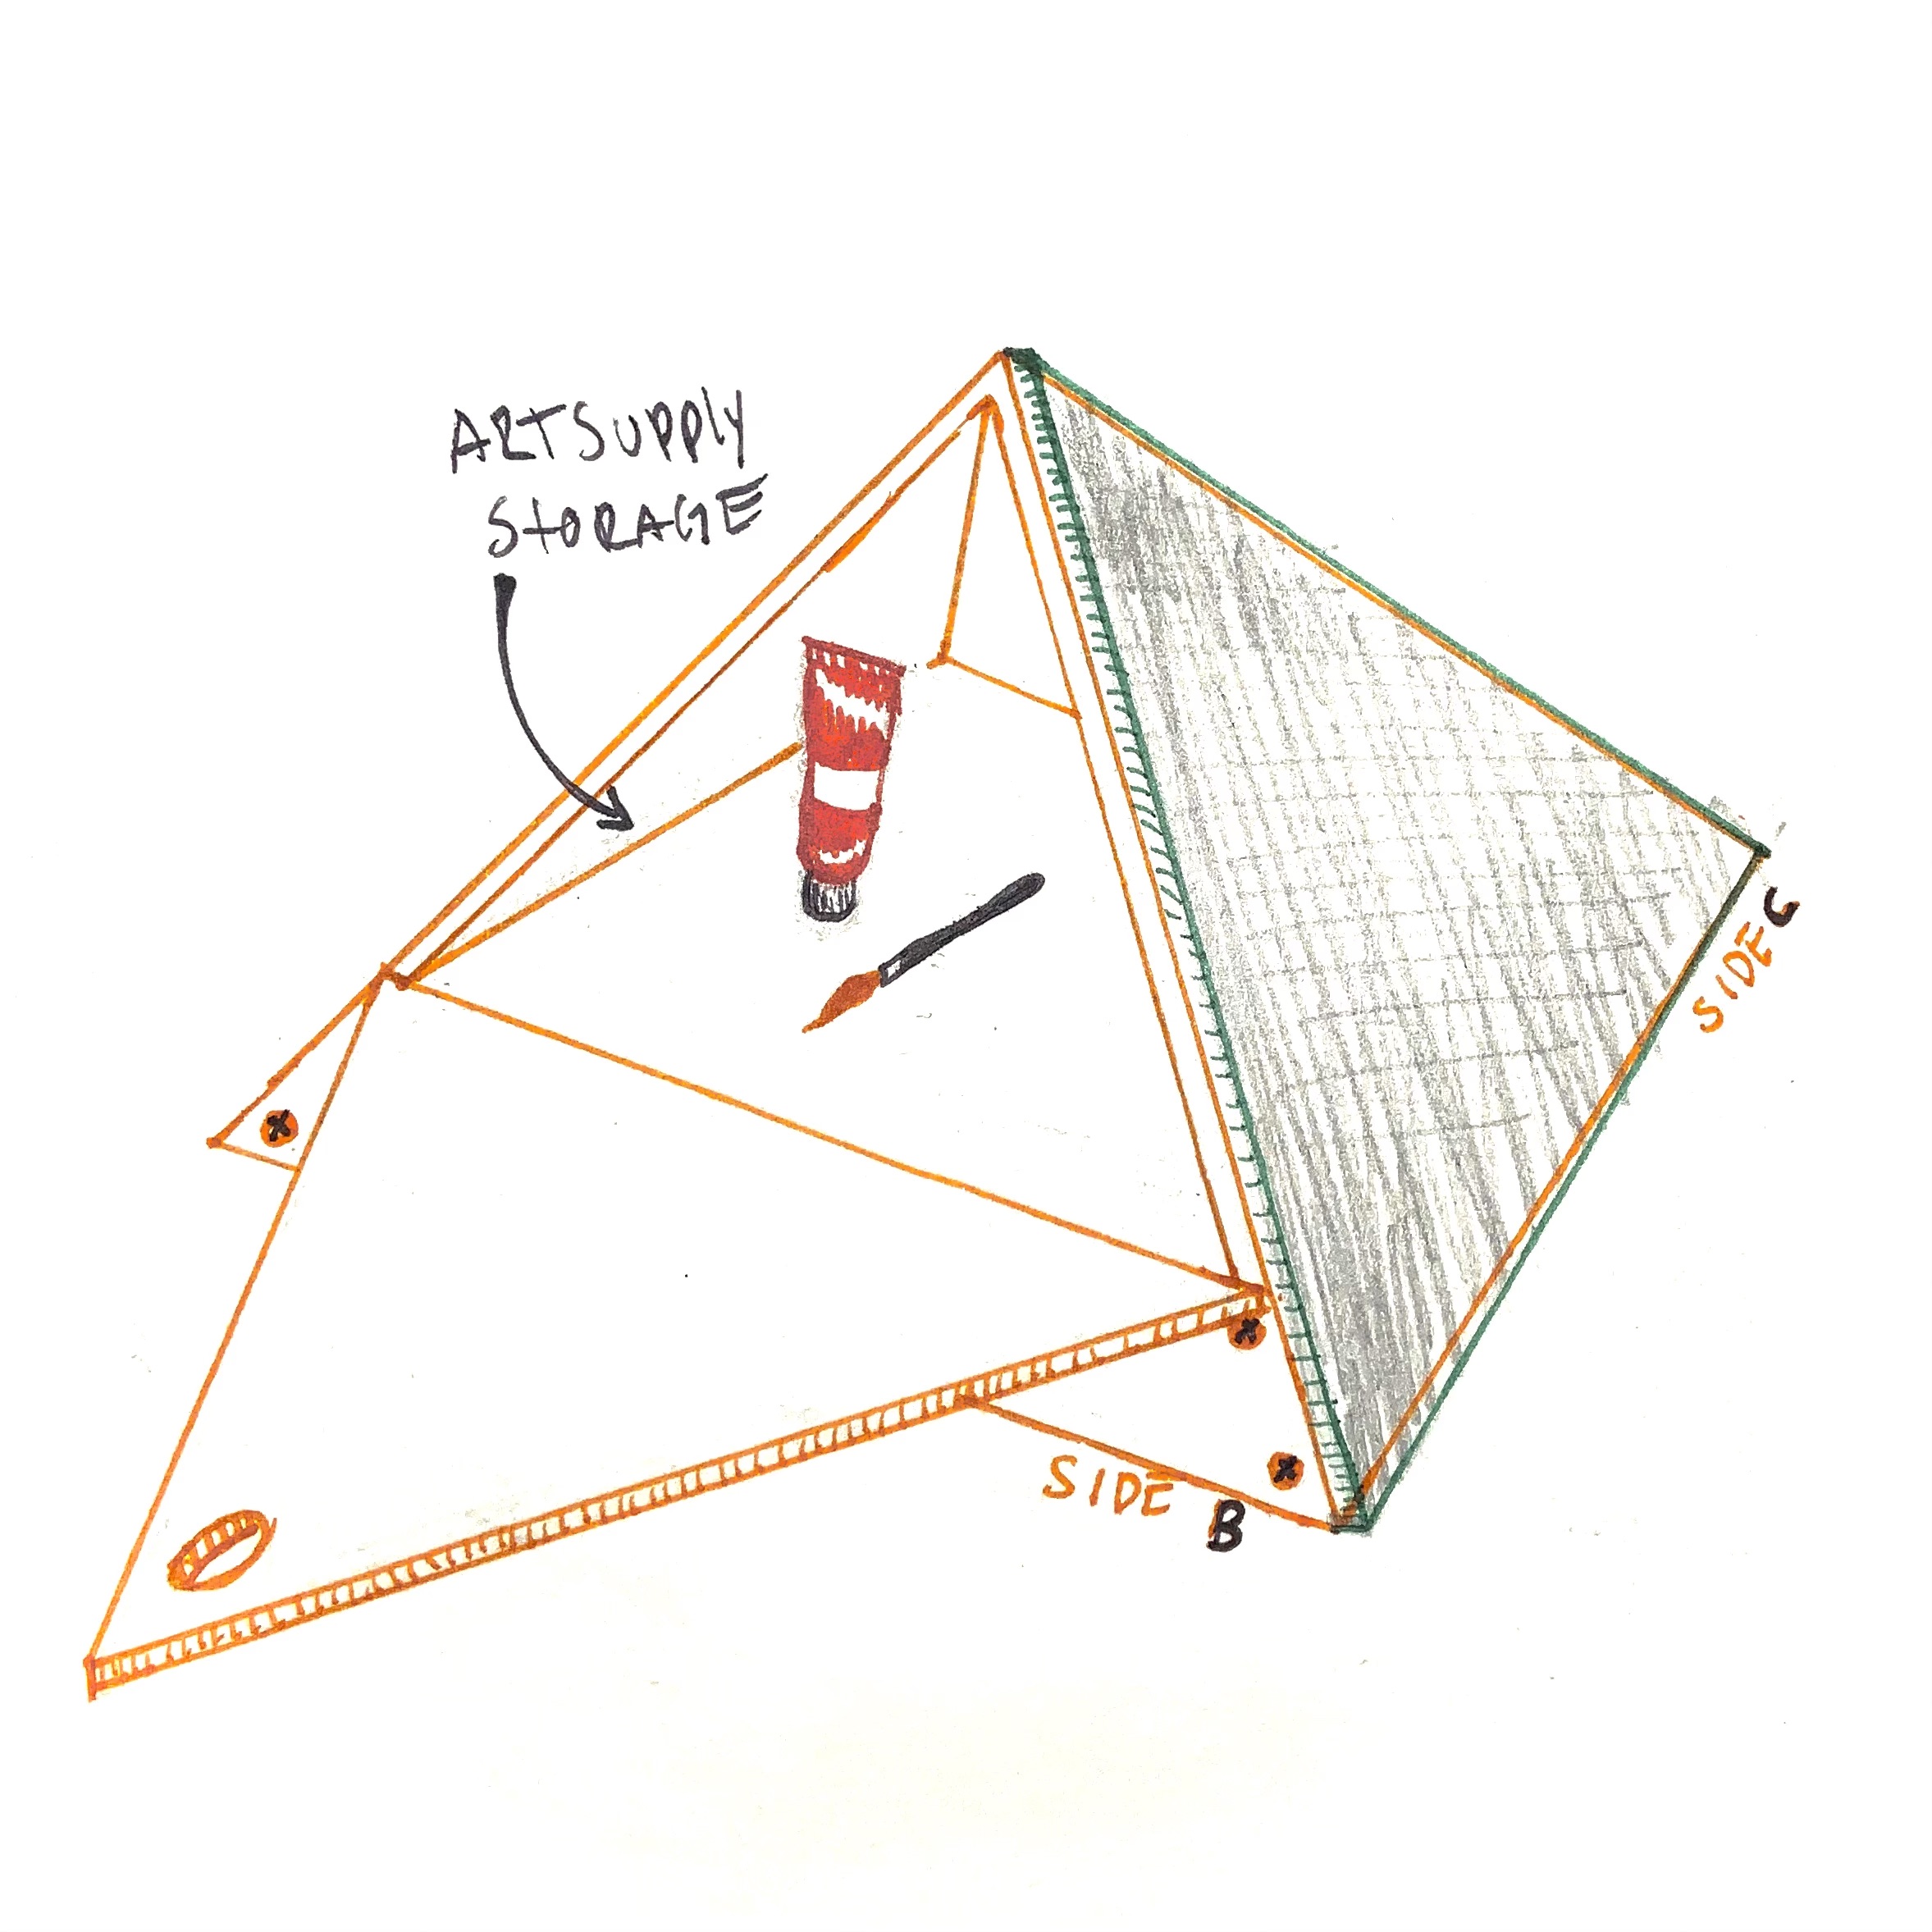 ARTSUPPLY
STORAGE
SIDE C
SIDE B